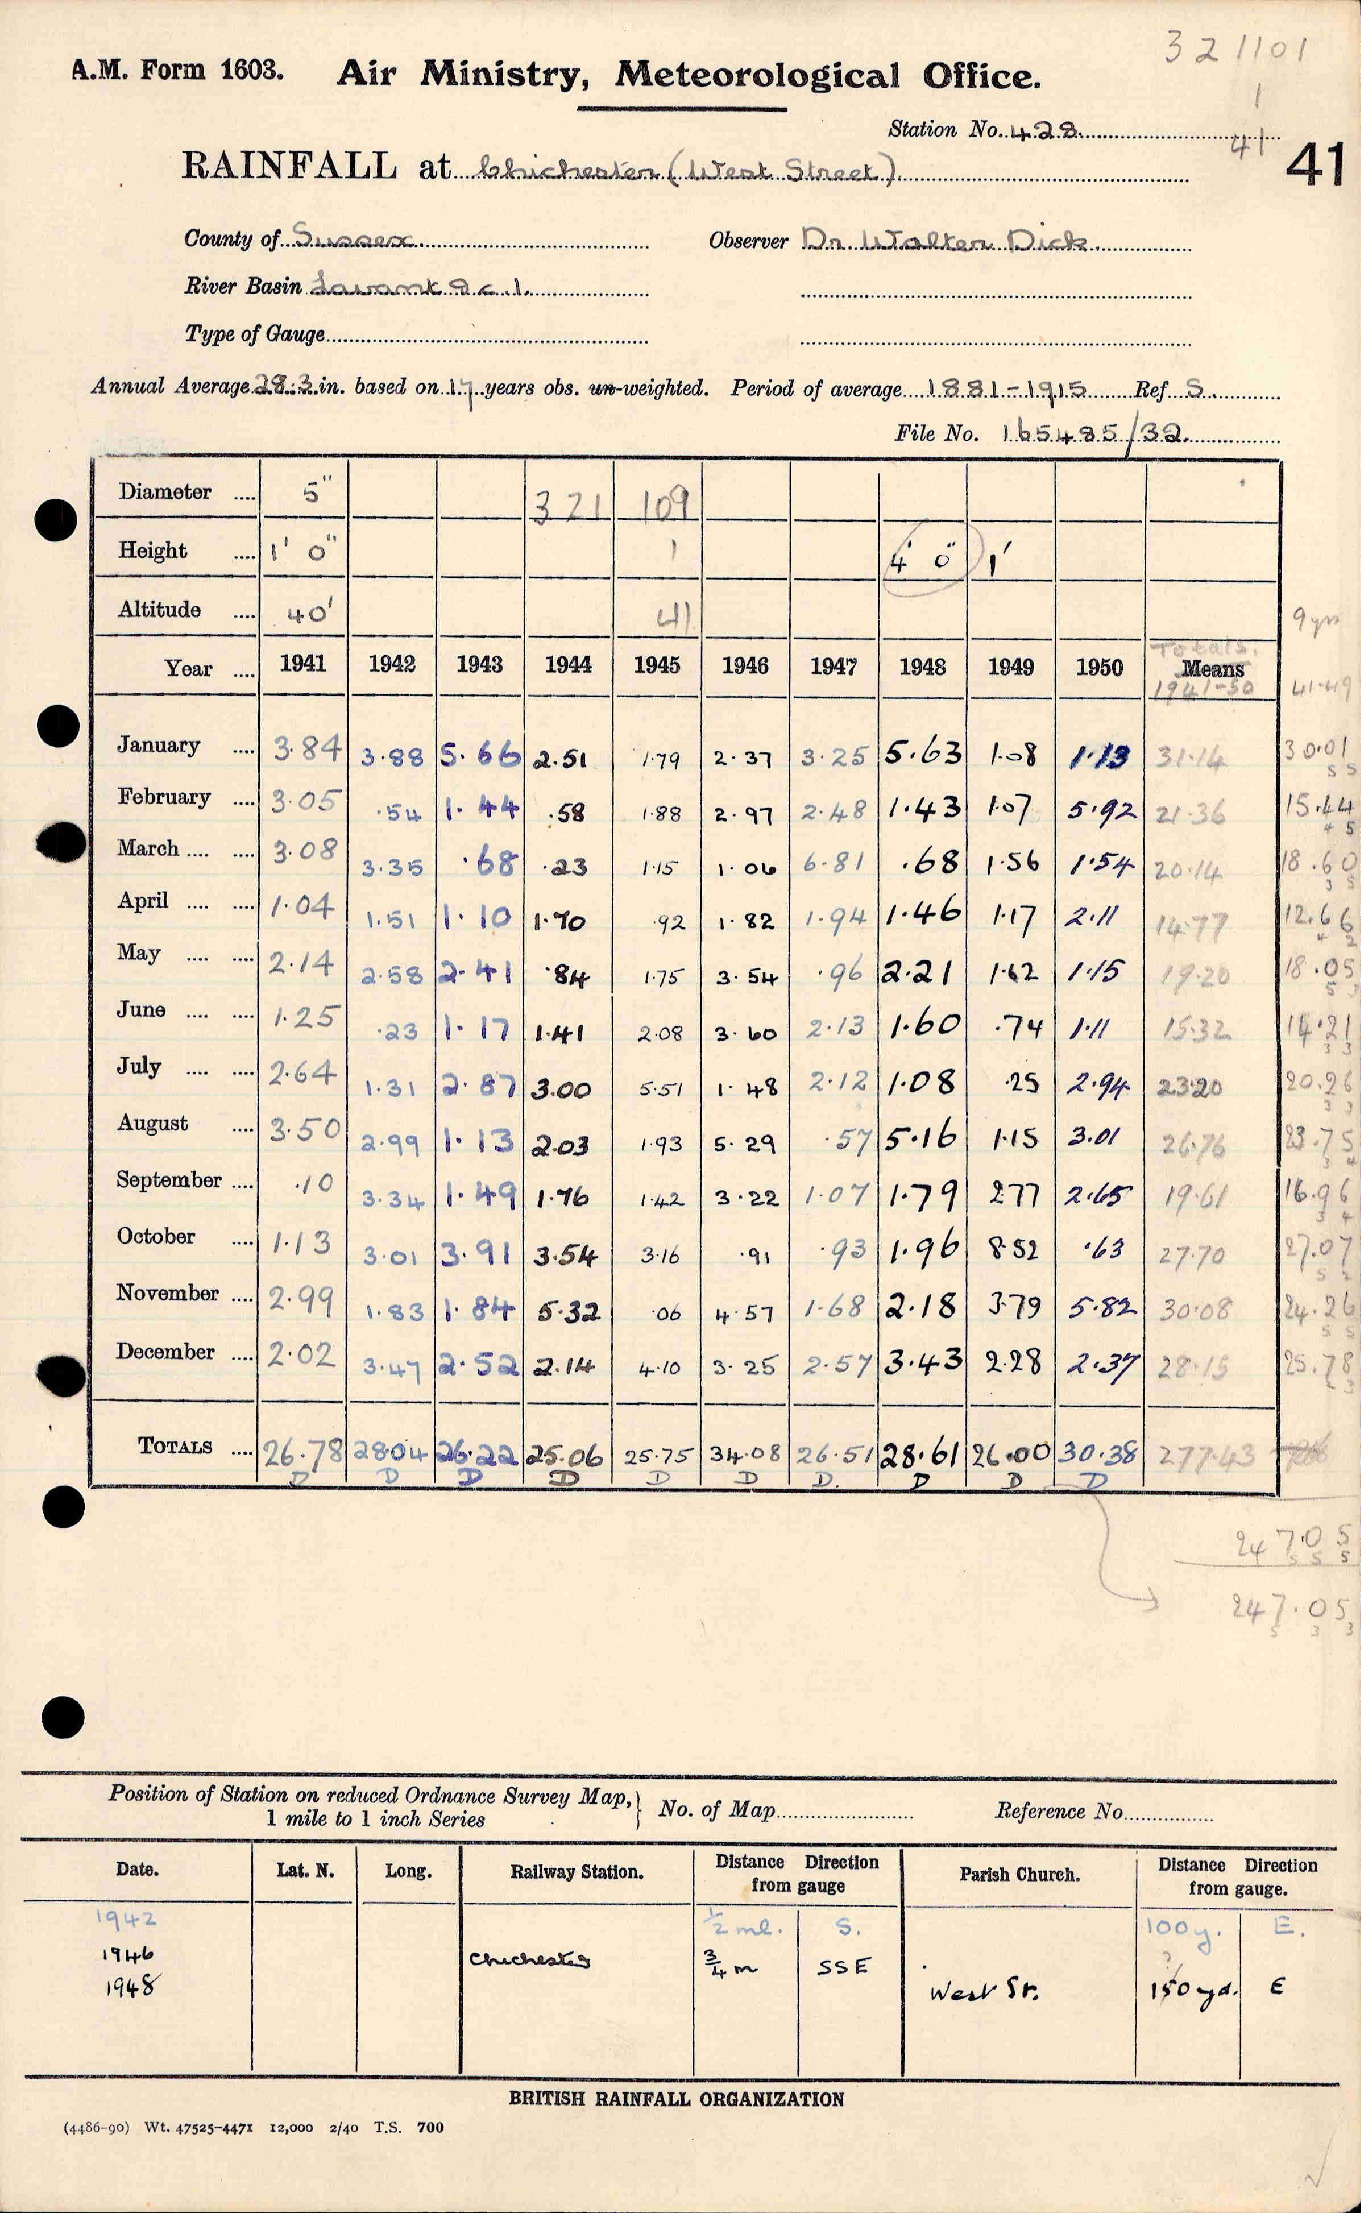 321101
A.M. Form 1603. Air Ministry, Meteorological Office.
1
Station No. 428
41
41
RAINFALL at Chichester (West Street)
County of Sussex Observer Dr. Walter Dick
River Basin Lavant &c 1.
Type of Gauge
Annual Average 28.3 in. based on 17 years obs. un-weighted. Period of average 1881-1915 Ref S.
File No. 165485/32
Diameter .... 5" 321 109
Height .... 1' 0" 1 4' 0" 1'
Altitude .... 40' 41 9 yrs
Year .... 1941 1942 1943 1944 1945 1946 1947 1948 1949 1950 Totals. Means 1941-50 41-49
January .... 3.84 3.88 5.66 2.51 1.79 2.37 3.25 5.63 1.08 1.13 31.14 30.01
February .... 3.05 .54 1.44 .58 1.88 2.97 2.48 1.43 1.07 5.92 21.36 15.44
March .... .... 3.08 3.35 .68 .23 1.15 1.06 6.81 .68 1.56 1.54 20.14 18.60
April .... .... 1.04 1.51 1.10 1.70 .92 1.82 1.94 1.46 1.17 2.11 14.77 12.66
May .... .... 2.14 2.58 2.41 .84 1.75 3.54 .96 2.21 1.62 1.15 19.20 18.05
June .... .... 1.25 .23 1.17 1.41 2.08 3.60 2.13 1.60 .74 1.11 15.32 14.21
July .... .... 2.64 1.31 2.87 3.00 5.51 1.48 2.12 1.08 .25 2.94 23.20 20.26
August .... 3.50 2.99 1.13 2.03 1.93 5.29 .57 5.16 1.15 3.01 26.76 23.75
September .... .10 3.34 1.49 1.76 1.42 3.22 1.07 1.79 2.77 2.65 19.61 16.96
October .... 1.13 3.01 3.91 3.54 3.16 .91 .93 1.96 8.52 .63 27.70 27.07
November .... 2.99 1.83 1.84 5.32 .06 4.57 1.68 2.18 3.79 5.82 30.08 24.26
December .... 2.02 3.47 2.52 2.14 4.10 3.25 2.57 3.43 2.28 2.37 28.15 25.78
TOTALS .... 26.78 28.04 26.22 25.06 25.75 34.08 26.51 28.61 26.00 30.38 277.43
D D D D D D D. D D D
247.05
247.05
Position of Station on reduced Ordnance Survey Map, 1 mile to 1 inch Series } No. of Map Reference No.
Date. Lat. N. Long. Railway Station. Distance Direction from gauge Parish Church. Distance Direction from gauge.
1942 ½ ml. S. 100y. E.
1946 Chichester ¾ m SSE ?
1948 West St. 150 yd. E
BRITISH RAINFALL ORGANIZATION
(4486-90) Wt. 47525-4471 12,000 2/40 T.S. 700